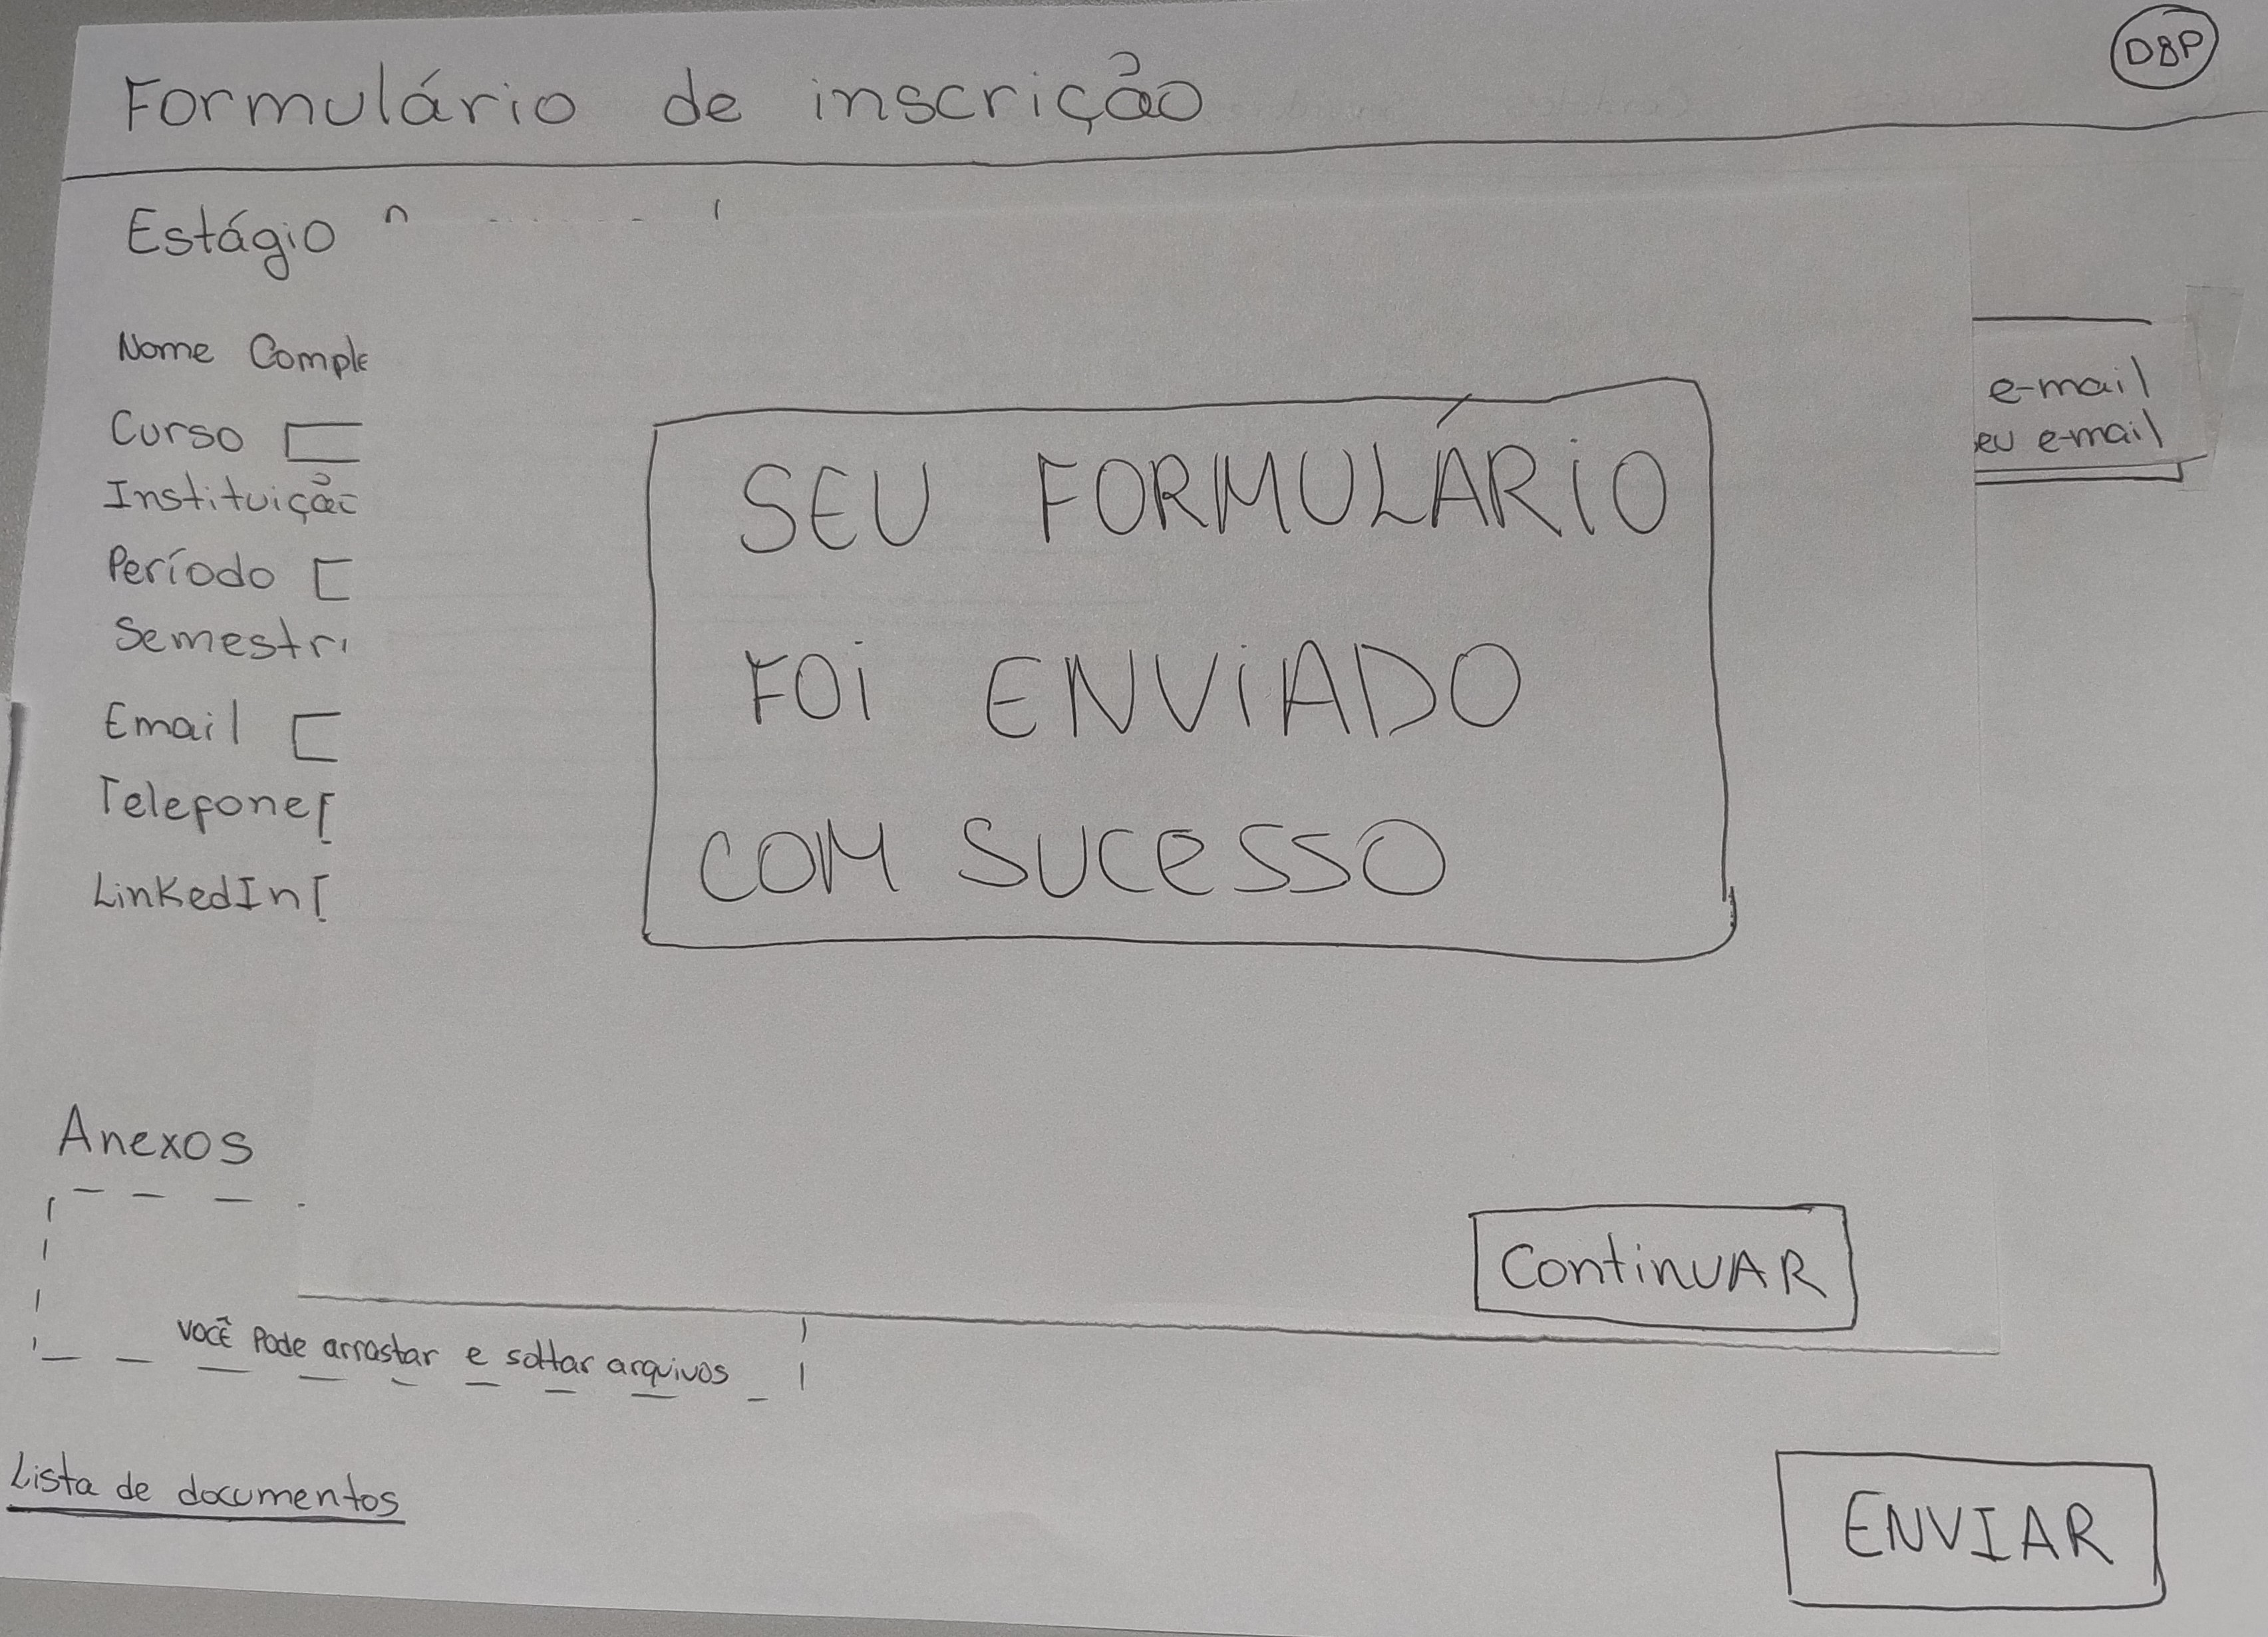 Formulário de inscrição
DBP
Estágio
Nome Comple
Curso
e-mail
eu e-mail
Instituição
Período
Semestr
Email
Telefone
LinkedIn
SEU FORMULÁRIO
FOI ENVIADO
COM SUCESSO
Anexos
Continuar
você Pode arrastar e soltar arquivos
Lista de documentos
ENVIAR